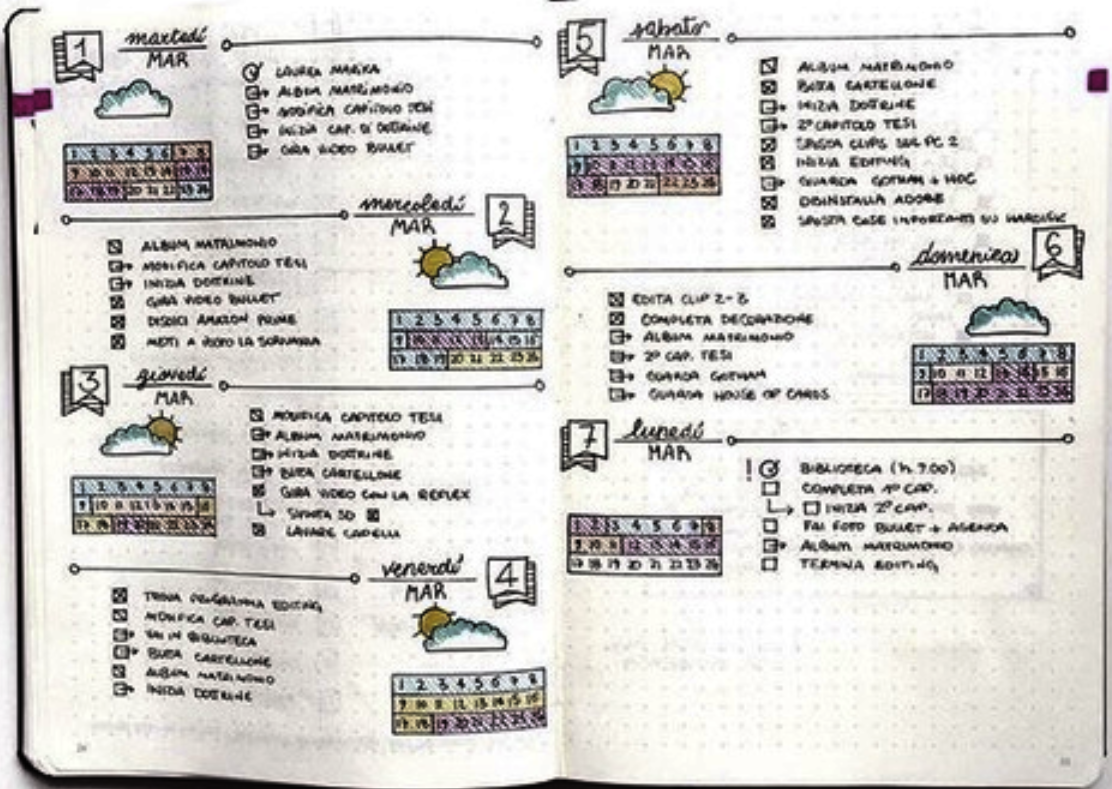 1 martedí
MAR
LAUREA MARIKA
ALBUM MATRIMONIO
MODIFICA CAPITOLO TESI
INIZIA CAP. DI DOTTRINE
GIRA VIDEO BULLET
1 2 3 4 5 6 7 8
9 10 11 12 13 14 15 16
17 18 19 20 21 22 23 24
mercoledí 2
MAR
ALBUM MATRIMONIO
MODIFICA CAPITOLO TESI
INIZIA DOTTRINE
GIRA VIDEO BULLET
DISDICI AMAZON PRIME
METTI A POSTO LA
1 2 3 4 5 6 7 8
9 10 11 12 13 14 15 16
17 18 19 20 21 22 23 24
3 giovedí
MAR
MODIFICA CAPITOLO TESI
ALBUM MATRIMONIO
INIZIA DOTTRINE
BUTTA CARTELLONE
GIRA VIDEO CON LA REFLEX
SD
LAVARE CAPELLI
1 2 3 4 5 6 7 8
9 10 11 12 13 14 15 16
17 18 19 20 21 22 23 24
venerdí 4
MAR
TROVA PROGRAMMA EDITING
MODIFICA CAP. TESI
VAI IN BIBLIOTECA
BUTTA CARTELLONE
ALBUM MATRIMONIO
INIZIA DOTTRINE
1 2 3 4 5 6 7 8
9 10 11 12 13 14 15 16
17 18 19 20 21 22 23 24
5 sabato
MAR
ALBUM MATRIMONIO
BUTTA CARTELLONE
INIZIA DOTTRINE
2° CAPITOLO TESI
SPOSTA CLIPS SUL PC 2
INIZIA EDITING
GUARDA GOTHAM + HOC
DISINSTALLA ADOBE
SPOSTA COSE IMPORTANTI SU HARDISK
1 2 3 4 5 6 7 8
9 10 11 12 13 14 15 16
17 18 19 20 21 22 23 24
domenica 6
MAR
EDITA CLIP 2-3
COMPLETA DECORAZIONE
ALBUM MATRIMONIO
2° CAP. TESI
GUARDA GOTHAM
GUARDA HOUSE OF CARDS
1 2 3 4 5 6 7 8
9 10 11 12 13 14 15 16
17 18 19 20 21 22 23 24
7 lunedí
MAR
! BIBLIOTECA (h 9.00)
COMPLETA 1° CAP.
INIZIA 2° CAP.
FAI FOTO BULLET + AGENDA
ALBUM MATRIMONIO
TERMINA EDITING
1 2 3 4 5 6 7 8
9 10 11 12 13 14 15 16
17 18 19 20 21 22 23 24